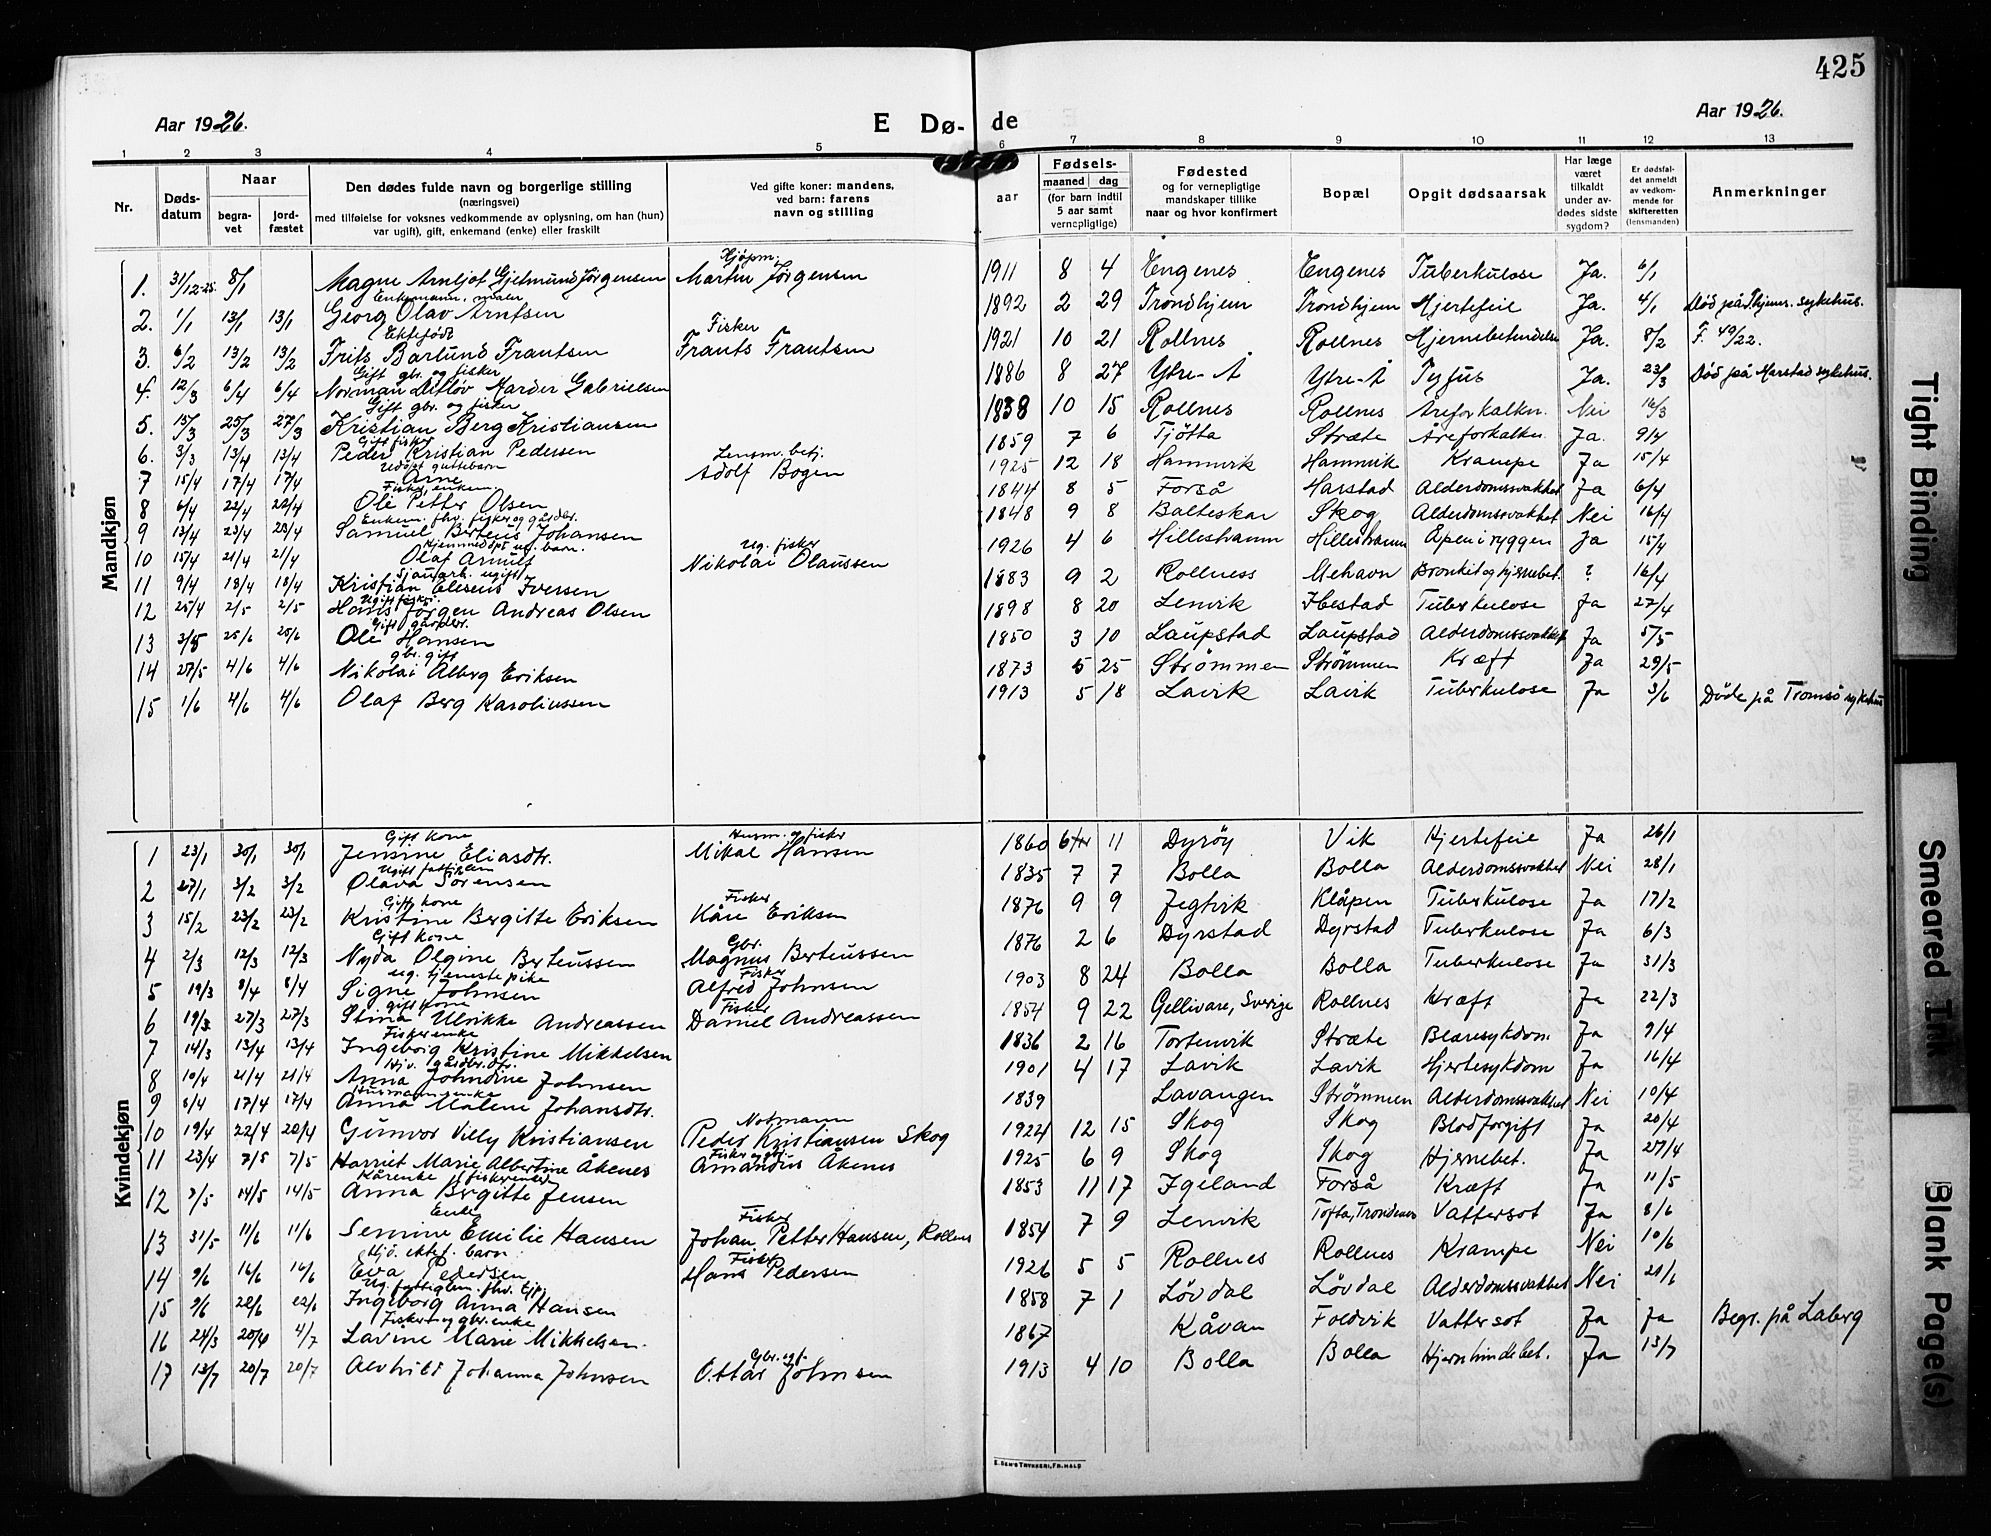 425
Aar 1926.
E Dø-
de
Aar 1926.
1 2 3 4 5 6 7 8 9 10 11 12 13
Nr.
Døds-
datum
Naar
begra-
vet
jord-
fæstet
Den dødes fulde navn og borgerlige stilling
(næringsvei)
med tilføielse for voksnes vedkommende av oplysning, om han (hun)
var ugift), gift, enkemand (enke) eller fraskilt
Ved gifte koner: mandens,
ved barn: farens
navn og stilling
Fødsels-
aar
maaned dag
(for barn indtil
5 aar samt
vernepligtige)
Fødested
og for vernepligtige
mandskaper tillike
naar og hvor konfirmert
Bopæl
Opgit dødsaarsak
Har læge
været
tilkaldt
under av-
dødes sidste
sygdom?
Er dødsfal-
det anmeldt
av vedkom-
mende for
skifteretten
(lensmanden)
Anmerkninger
Mandkjøn
Kjøpm.
1. 31/12-25. 8/1 Magne Arnljot Gjelmund Jørgensen Martin Jørgensen 1911 8 4 Engenes Engenes Tuberkulose Ja. 6/1
Enkemann, maler
2. 1/1 13/1 13/1 Georg Olav Arntsen 1892 2 29 Trondhjem Trondhjem Hjertefeil Ja. 4/1 Død på Thjems. sykehus.
Ektefødt Fisker
3. 6/2 13/2 13/2 Frits Barlund Frantsen Frants Frantsen 1921 10 21 Rollnes Rollnes Hjernebetendelse Ja. 8/2 F. 49/22.
Gift gbr. og fisker
4. 12/3 6/4 6/4 Norman Ditlov Harder Gabrielsen 1886 8 27 Ytre-Å Ytre-Å Tyfus Ja. 23/3 Død på Harstad sykehus.
Gift gbr. og fisker
5. 15/3 25/3 27/3 Kristian Berg Kristiansen 1838 10 15 Rollnes Rollnes Åreforkalkn. Nei 16/3
Gift fisker
6. 3/3 13/4 13/4 Peder Kristian Pedersen 1859 7 6 Tjøtta Stræte Åreforkalkn. Ja. 9/4
Udøpt guttebarn Lensm. betj.
7 15/4 17/4 17/4 Arne Adolf Bogen 1925 12 18 Hamnvik Hamnvik Krampe Ja 15/4
Fisker, enkem.
8 6/4 22/4 22/4 Ole Petter Olsen 1844 8 5 Forså Harstad Alderdomssvakhet Ja 6/4
Enkem. fhv. fisker og gårdbr.
9 13/4 23/4 23/4 Samuel Berteus Johansen 1848 9 8 Balteskar Skog Alderdomssvakhet Nei 16/4
Hjemmedøpt ug. barn. Ug. fisker
10 15/4 21/4 21/4 Olaf Arnulf Nikolai Olaussen 1926 4 6 Hilleshamn Hilleshamn Åpen i ryggen Ja 15/4
Sjauarb. ugift
11 9/4 18/4 18/4 Kristian Elesens Iversen 1883 9 2 Rollness Mehavn Bronkit og hjernebet. ? 16/4
Ugift fisker
12 25/4 2/5 2/5 Hans Jørgen Andreas Olsen 1898 8 20 Lenvik Ibestad Tuberkulose Ja 27/4
Gift gårdbr.
13 3/5 25/6 25/6 Ole Hansen 1850 3 10 Laupstad Laupstad Alderdomssvakhet Ja 5/5
gbr. gift
14 27/5 4/6 4/6 Nikolai Alberg Eriksen 1873 5 25 Strømmen Strømmen Kræft Ja 29/5
15 1/6 4/6 4/6 Olaf Berg Karoliussen 1913 5 18 Lavik Lavik Tuberkulose Ja 3/6 Døde på Tromsö sykehus
Kvindekjøn
Gift kone Husm. og fisker
1 23/1 30/1 30/1 Jensine Eliasdtr. Mikal Hansen 1860 6 11 Dyrøy Vik Hjertefeil Ja 26/1
Ugift fattiglem
2 27/1 3/2 3/2 Olava Sørensen 1835 7 7 Bolla Bolla Alderdomssvakhet Nei 28/1
Gift kone Fisker
3 15/2 23/2 23/2 Kristine Bergitte Eriksen Kåre Eriksen 1876 9 9 Jegtvik Klåpen Tuberkulose Ja 17/2
Gift kone Gbr.
4 2/3 12/3 12/3 Nyda Olgine Berteussen Magnus Berteussen 1876 2 6 Dyrstad Dyrstad Tuberkulose Ja 6/3
ug. tjenestepike Fisker
5 19/3 8/4 8/4 Signe Johnsen Alfred Johnsen 1903 8 24 Bolla Bolla Tuberkulose Ja 31/3
gift kone Fisker
6 19/3 27/3 27/3 Stina Ulrikke Andreassen Daniel Andreassen 1854 9 22 Gellivare, Sverige Rollnes Kræft Ja 22/3
Fiskerenke
7 14/3 13/4 13/4 Ingeborg Kristine Mikkelsen 1836 2 16 Tortenvik Stræte Blæresykdom Ja 9/4
Hjv. gårdbr. dtr.
8 10/4 21/4 21/4 Anna Johndine Johnsen 1901 4 17 Lavik Lavik Hjertesykdom Ja 16/4
Husmannsenke
9 8/4 17/4 17/4 Anna Malene Johansdtr. 1839 Lavangen Strømmen Alderdomssvakhet Nei 10/4
Notmann
10 19/4 22/4 20/4 Gunvor Villy Kristiansen Peder Kristiansen Skog 1924 12 15 Skog Skog Blodforgift Ja 20/4
Fisker og gbr.
11 23/4 7/5 7/5 Harriet Marie Albertine Åkenes Amandus Åkenes 1925 6 9 Skog Skog Hjernebet. Ja 27/4
Kårenke fiskerenke
12 9/5 14/5 14/5 Anna Bergitte Jensen 1853 11 17 Igeland Forså Kræft Ja 11/5
Enke Fisker
13 31/5 11/6 11/6 Semine Emilie Hansen Johan Petter Hansen, Rollnes 1854 7 9 Lenvik Tofta, Trondenes Vattersot Ja 8/6
Hjd. ektef. barn Fisker
14 9/6 16/6 16/6 Eva Pedersen Hans Pedersen 1926 5 5 Rollnes Rollnes Krampe Nei 10/6
Ug. fattiglem. fhv. tjp.
15 9/6 22/6 22/6 Ingeborg Anna Hansen 1858 7 1 Løvdal Løvdal Alderdomssvakhet Nei 21/6
Fisker og gbr. enke
16 24/3 20/4 4/7 Lavine Marie Mikkelsen. 1867 Kåvan Foldvik Vattersot Ja Ja Begr. på Laberg
Gbr. og f.
17 13/7 20/7 20/7 Alvhild Johanna Johnsen Ottar Johnsen 1913 4 10 Bolla Bolla Hjernhindebet. Ja 13/7
E. SEM'S TRYKKERI, FR.HALD
Tight Binding
Smeared Ink
Blank Page(s)